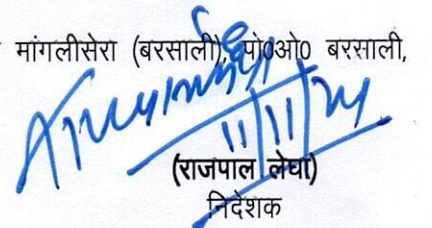 मांगलीसेरा (बरसाली), पो०ओ० बरसाली,
11/11/24
(राजपाल लेघा)
निदेशक